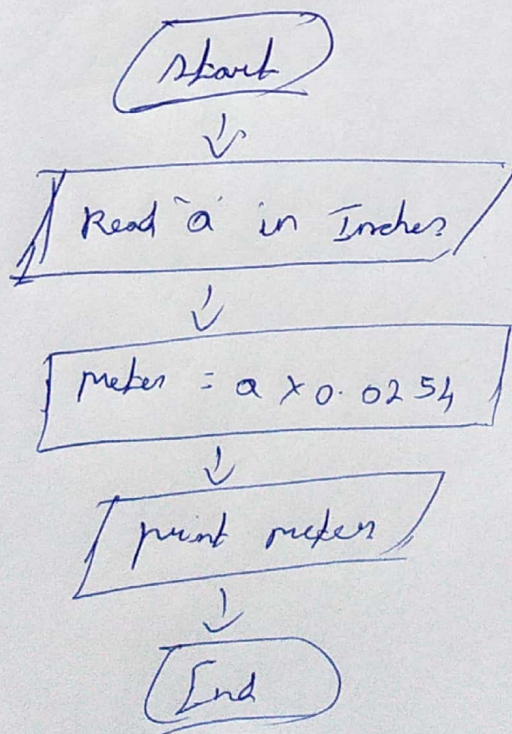 Start
Read 'a' in Inches
meter = a x 0.0254
print meter
End